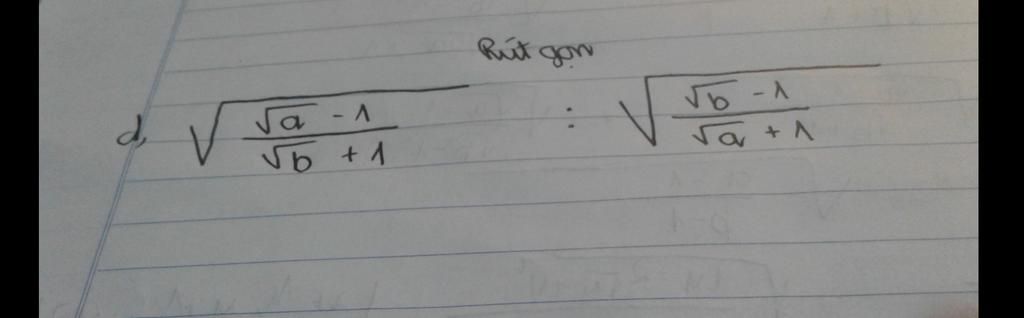 Rút gọn
d, √((√a - 1)/(√b + 1)) : √((√b - 1)/(√a + 1))